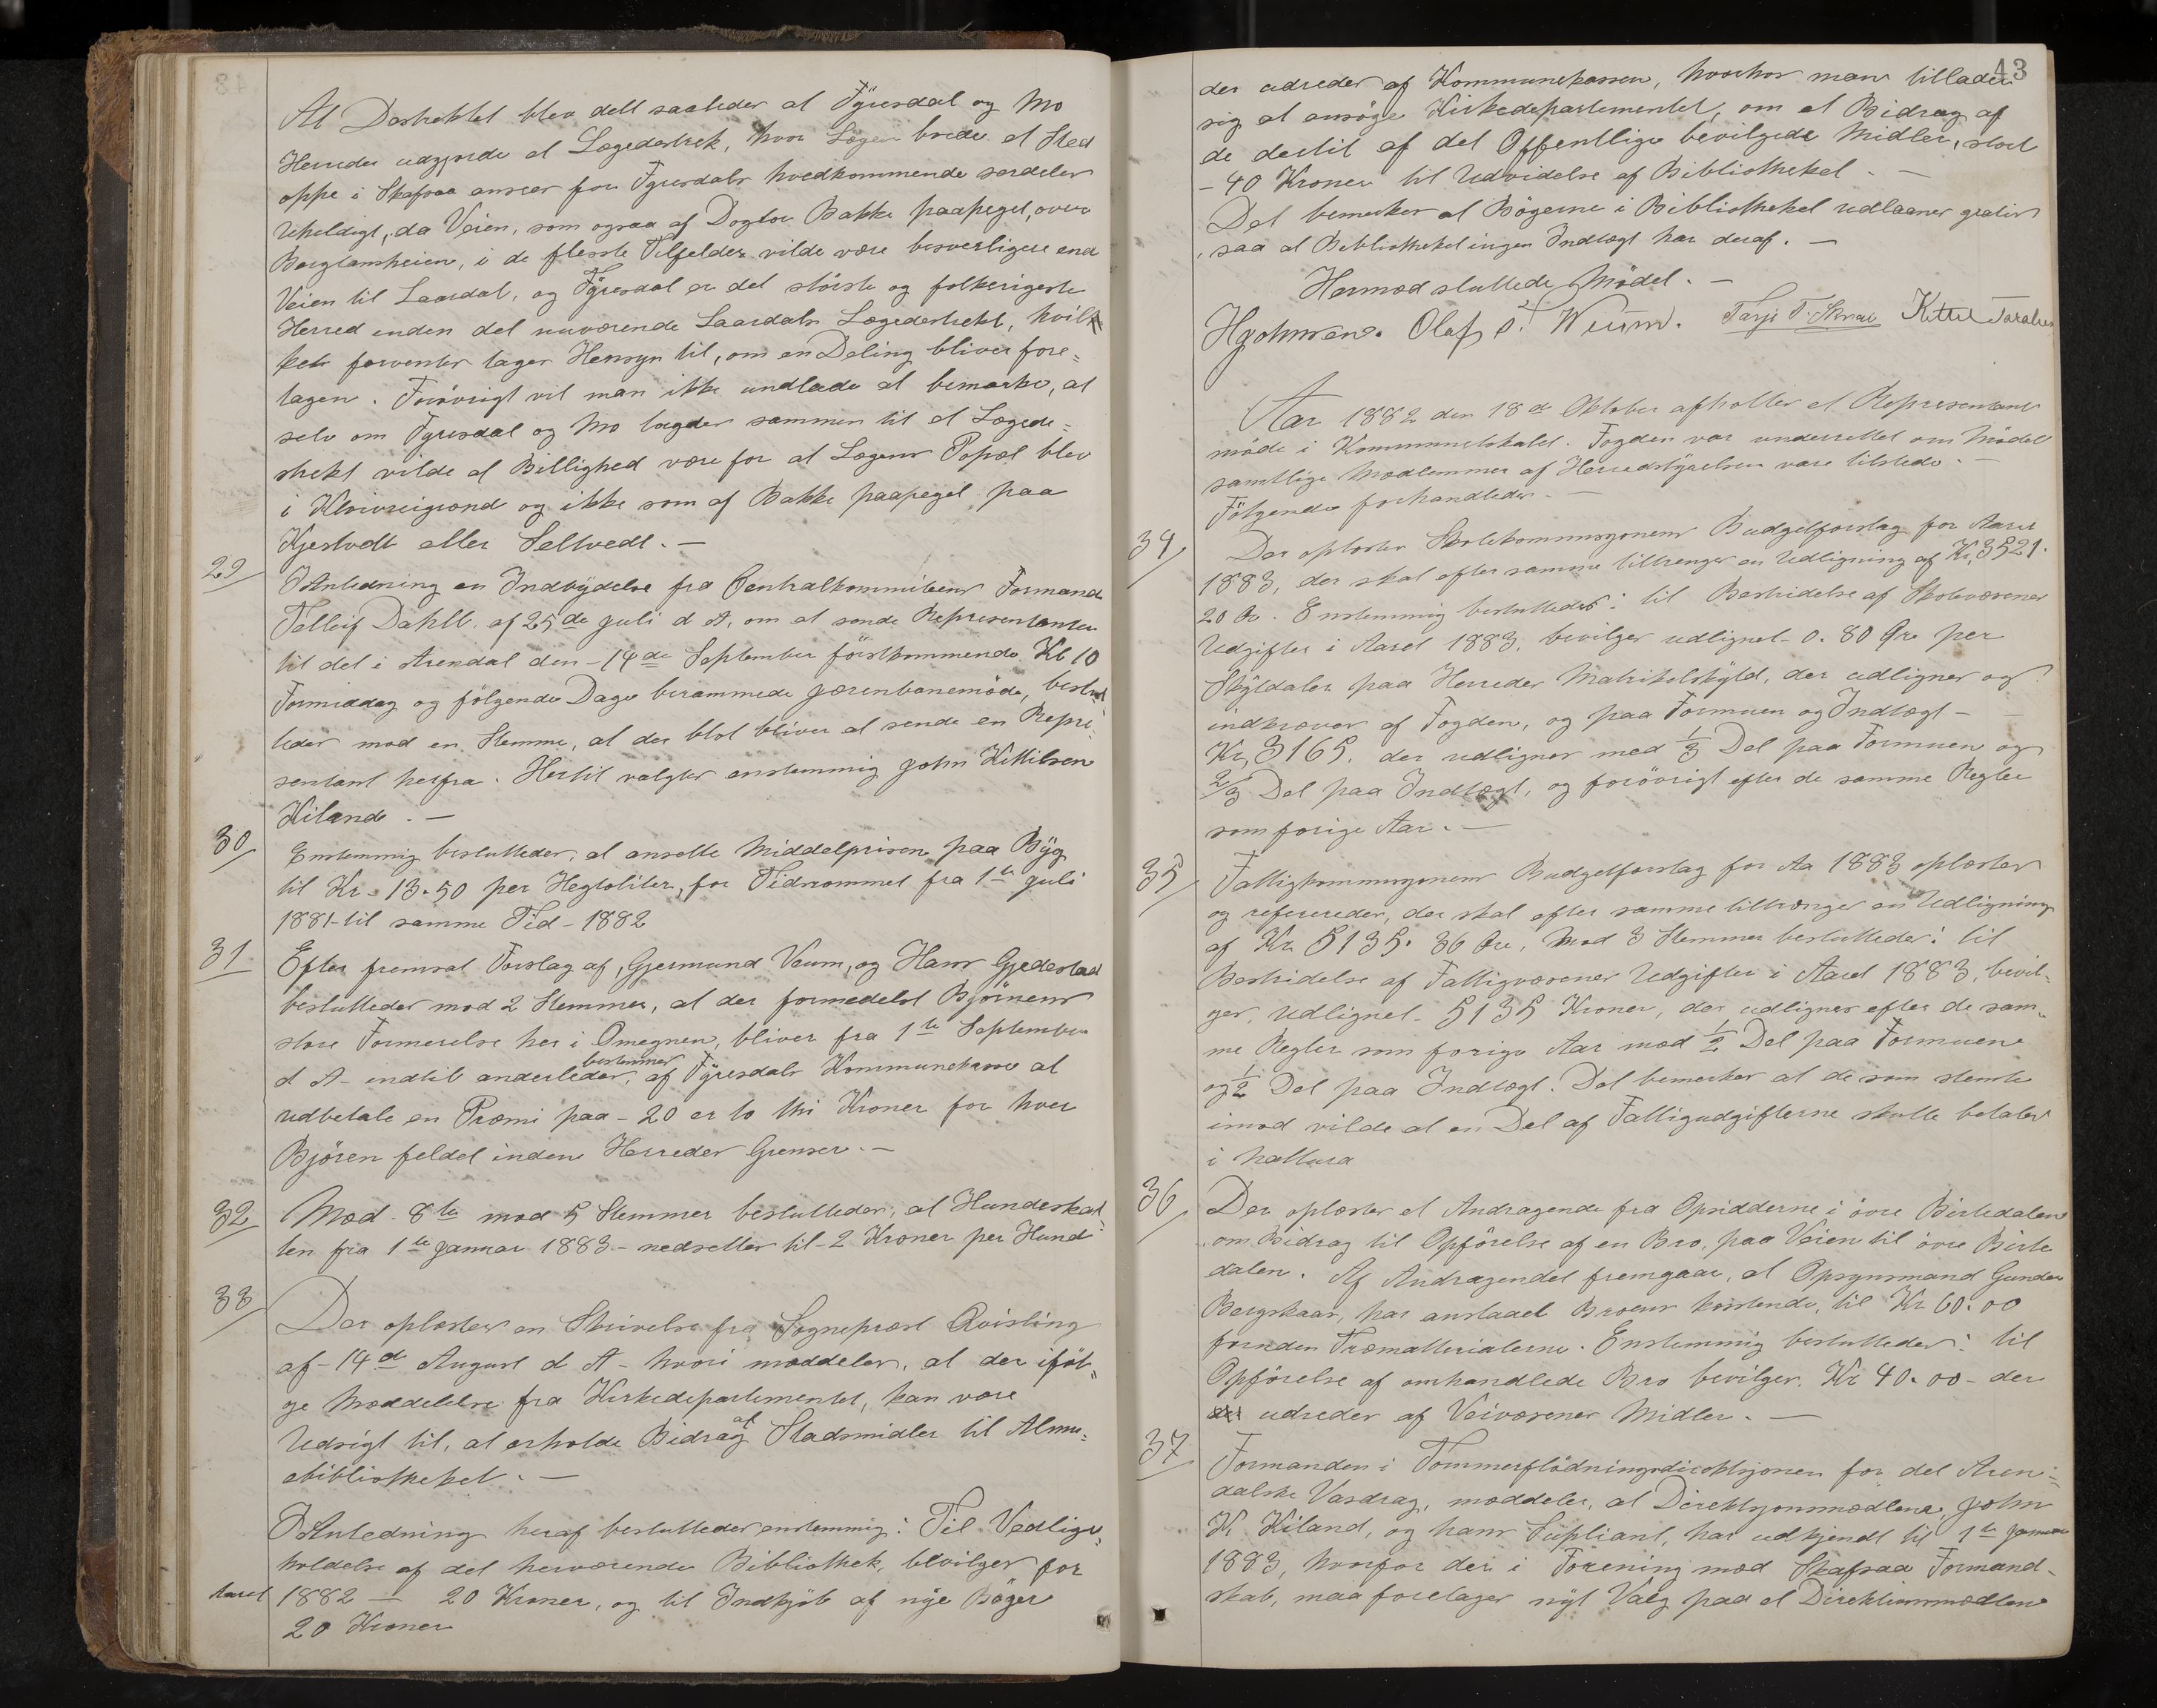 At Destrektet blev delt saaledes at Fyresdal og Mo
Herreder udgjorde et Lægedestrek, hvor Lægen boede et Sted
oppe i Skafsaa ansees for Fyresdals hvedkommende særdeles
uheldigt, da Veien, som ogsaa af Dogtor Bakke paapeget, over
i de fleste Tilfelder vilde være besværligere end
Veien til Laardal, og Fyresdal er det störste og folkerigeste
Herred inden det nuværende Laardals Lægedestrekt, hvil-
ket forventes tages Hensyn til, om en Deling bliver fore=
tagen. Forövrigt vil man ikke undlade at bemærke, at
selv om Fyresdal og Mo lægdes sammen til et Lægede=
strekt vilde al Billighed være for at Lægens Bopæl blev
i og ikke som af Bakke paapeget paa
eller Seltvedt. —
29/
I Anledning en Indbydelse fra Centralkommiteens Formand
Tellef Dahll af 25de Juli d A, om at sende Representanter
til det i Arendal den - 14de September förstkommende Kl 10
Formiddag og fölgende Dage berammede Jærenbanemöde, beslut
tedes mod en Stemme, at der blot bliver at sende en Repre=
sentant herfra. Hertil valgtes enstemmig John Kittilsen
Kiland. —
30/
Enstemmig besluttedes, at ansette Middelprisen paa Byg
til Kr. 13.50 per Hegtoliter, for Tidrommet fra 1te Juli
1881 - til samme Tid - 1882
31
Efter fremsat Forslag af, Gjermund Veum, og Hans Gjedestad
besluttedes mod 2 Stemmer, at der formedelst Björnens
store Formerelse her i Omegnen, bliver fra 1te September
bestemmes
d A - indtil anderledes, af Fyresdals Kommunekasse at
udbetale en Præmi paa - 20 er to thi Kroner for hver
Björen feldet inden Herreder Grenser. —
32
Mod 8te mod 5 Stemmer besluttedes, at Hundeskat
ten fra 1te Januar 1883 - nedsettes til - 2 Kroner per Hund
33/
Der oplæstes en Skrivelse fra Sogneprest Qvisling
af - 14de August d A - hvori meddeles, at der iföl=
ge Meddelelse fra Kirkedepartementet, kan være
af
Udsigt til, at erholde Bidrag Stadsmidler til Almu=
ebibliotheket. —
I Anledning heraf besluttedes enstemmig: Til Vedlige=
holdelse af det herværende Bibliothek, bevilges for
Aaret 1882 — 20 Kroner, og til Indkjöb af nye Böger
20 Kroner
43
der udredes af Kommunekassen, hvorhos man tillader
sig at ansöge Kirkedepartementet, om et Bidrag af
de dertil af det Offentlige bevilgede Midler, stort
- 40 Kroner til Udvidelse af Bibliotheket. —
Det bemerkes at Bögerne i Bibliotheket udlaanes gratis
saa at Bibliotheket ingen Indtægt har deraf. —
Hermed sluttede Mödet. —
Olaf Weum. Tarje T. Kittel
Aar 1882 den 18de Oktober afholtes et Representant
möde i Kommunelokalet. Fogden var underrettet om Mödet
samtlige Medlemmer af Herredstyrelsen vare tilstede. —
Fölgende forhandledes. —
34/
Der oplæstes Skolekommisjonens Budgetforslag for Aaret
1883, der skal efter samme tiltrenges en Udligning af Kr. 3521.
20 Ör. Enstemmig besluttedes: til Bestridelse af Skolevæsenes
Udgifter i Aaret 1883, bevilges udlignet - 0.80 Öre per
Skyldaler paa Herredes Matrikelskyld, der udlignes og
indkræves af Fogden, og paa Formuen og Indtægt -
Kr, 3165. der udlignes med 1/3 Del paa Formuen og
2/3 Del paa Indtægt, og forövrigt efter de samme Regler
som forige Aar. —
35/
Fattigkommisjonens Budgetforslag for Aa 1883 oplæstes
og refereredes, der skal efter samme tiltrænges en Udligning
af Kr 5135. 36 Öre. Mod 3 Stemmer besluttedes: til
Bestridelse af Fattigvæsenes Udgifter i Aaret 1883, bevil-
ges, udlignet - 5135 Kroner, der udlignes efter de sam=
me Regler som forige Aar med 1/2 Del paa Formuen
og 1/2 Del paa Indtægt. Det bemerkes at de som stemte
imod vilde at en Del af Fattigudgifterne skulle betales
i Nattura
36/
Der oplæstes et Andragende fra Opsidderne i övre Birtedalen
om Bidrag til Opförelse af en Bro, paa Veien til övre Birte
dalen. Af Andragendet fremgaar, at Opsynsmand Gunder
Bergskaas, har anslaaet Broens kostende, til Kr 60.00
foruden Træmatterialerne. Enstemmig besluttedes: til
Opförelse af omhandlede Bro bevilges Kr 40.00 - der
udredes af Veivæsenes Midler. —
37/
Formanden i Tommerflödningsdirektsjonen for det Aren=
dalske Vasdrag, meddeler, at Direktsjonsmedlem, John
K Kiland, og hans Supliant, har udtjendt til 1te Januar
1883, hvorfor der i Forening med Skafsaa Formand-
skab, maa foretages nyt Valg paa et Direktionsmedlem